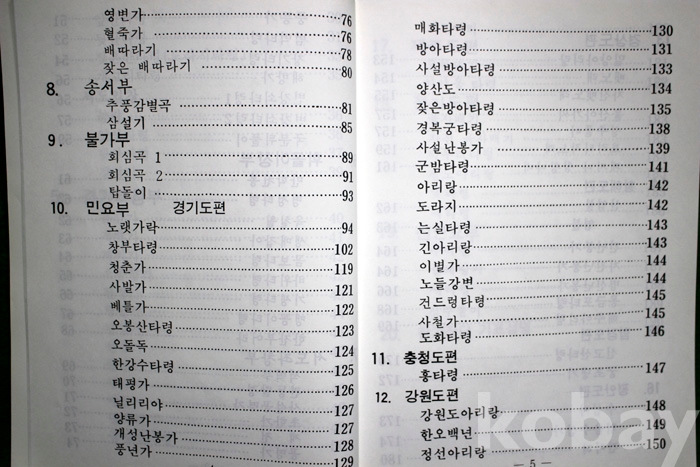 영변가 76
혈죽가 76
배따라기 78
잦은 배따라기 80
8. 송서부
추풍감별곡 81
삼설기 85
9. 불가부
회심곡 1 89
회심곡 2 91
탑돌이 93
10. 민요부 경기도편
노랫가락 94
창부타령 102
청춘가 119
사발가 121
베틀가 122
오봉산타령 123
오돌독 124
한강수타령 125
태평가 126
닐리리야 127
양류가 127
개성난봉가 128
풍년가 129
매화타령 130
방아타령 131
사설방아타령 133
양산도 134
잦은방아타령 135
경복궁타령 138
사설난봉가 139
군밤타령 141
아리랑 142
도라지 142
는실타령 143
긴아리랑 143
이별가 144
노들강변 144
건드렁타령 145
사철가 145
도화타령 146
11. 충청도편
흥타령 147
12. 강원도편
강원도아리랑 148
한오백년 149
정선아리랑 150
— 5 —
kobay